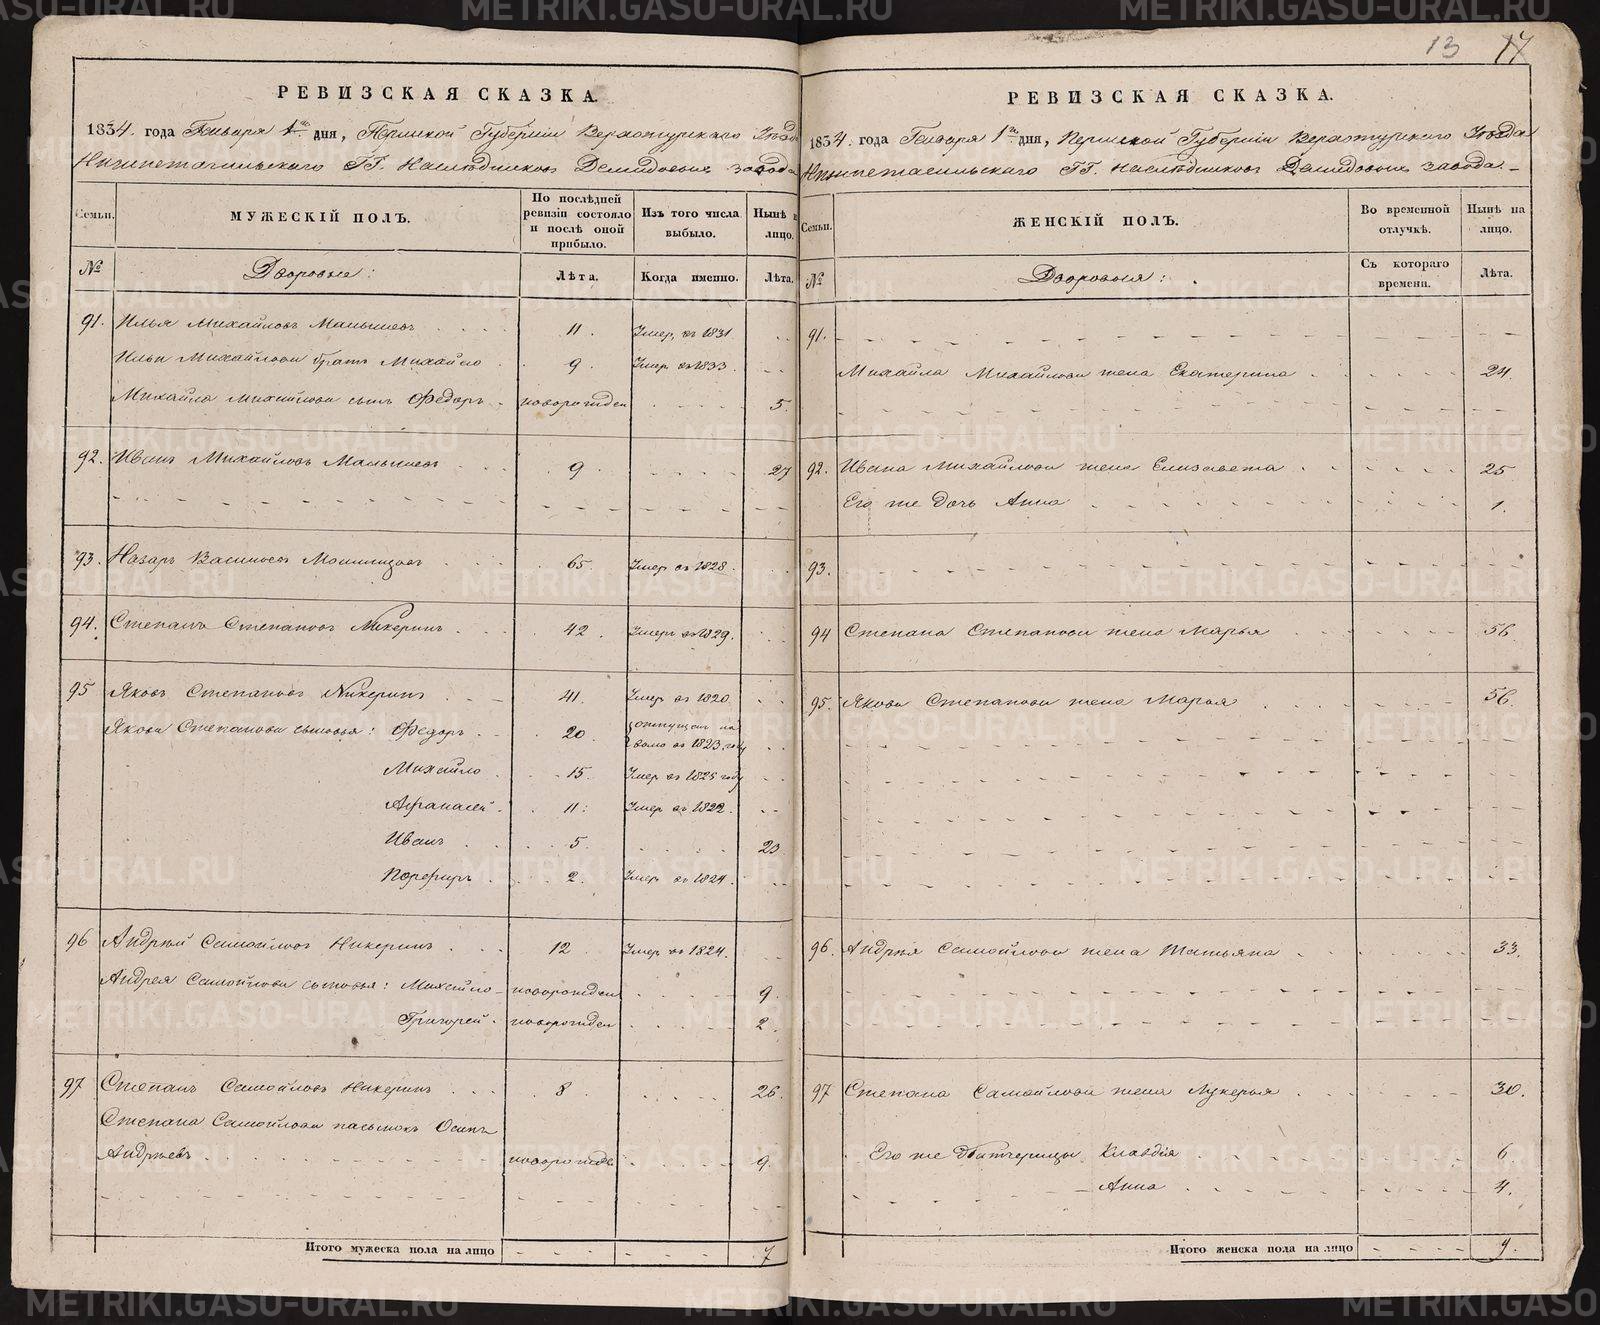 13 17
РЕВИЗСКАЯ СКАЗКА.
1834. года Генваря 1го дня, Пермской Губерніи Верхотурскаго Уѣзда
Нижнетагильскаго ГГ. Наслѣдниковъ Демидовыхъ завода
Семьи.
МУЖЕСКІЙ ПОЛЪ.
По послѣдней ревизіи состояло и послѣ оной прибыло.
Изъ того числа выбыло.
Нынѣ на лицо.
№
Дворовые:
Лѣта.
Когда именно.
Лѣта.
91. Илья Михайловъ Малышевъ 11. Умер. въ 1831
Ильи Михайлова братъ Михайло 9. Умер. въ 1833.
Михайла Михайлова сынъ Федоръ новорожден 5.
92. Иванъ Михайловъ Малышевъ 9. 27
93. Назаръ Васильевъ 65. Умер въ 1828.
94. Степанъ Степановъ Никеринъ 42. Умеръ въ 1829.
95 Яковъ Степановъ Никеринъ 41. Умер въ 1820.
Якова Степанова сыновья: Федоръ 20. отпущен на волю въ 1823. году
Михайло 15. Умер въ 1825 году
Афанасей 11: Умер въ 1822.
Иванъ 5. 23
Порфиръ 2. Умер въ 1824.
96 Андрѣй Самойловъ Никеринъ 12 Умер въ 1824.
Андрея Самойлова сыновья: Михайло новорожден 9.
Григорей новорожден 2.
97 Степанъ Самойловъ Никеринъ 8. 26.
Степана Самойлова пасынокъ Осипъ
Андрѣевъ новорожде 9.
Итого мужеска пола на лицо 7
РЕВИЗСКАЯ СКАЗКА.
1834. года Генваря 1го дня, Пермской Губерніи Верхотурскаго Уѣзда
Нижнетагильскаго ГГ. Наслѣдниковъ Демидовыхъ завода.
Семьи.
ЖЕНСКІЙ ПОЛЪ.
Во временной отлучкѣ.
Нынѣ на лицо.
№
Дворовыя:
Съ котораго времени.
Лѣта.
91.
Михайла Михайлова жена Екатерина 24.
92. Ивана Михайлова жена Елизавета 25
Его же дочь Анна 1.
93.
94 Степана Степанова жена Марья 56
95. Якова Степанова жена Марья 56.
96. Андрѣя Самойлова жена Татьяна 33.
97 Степана Самойлова жена Лукерья 30.
Его же Патчерицы Клавдія 6
Анна 4.
Итого женска пола на лицо 9.
METRIKI.GASO-URAL.RU